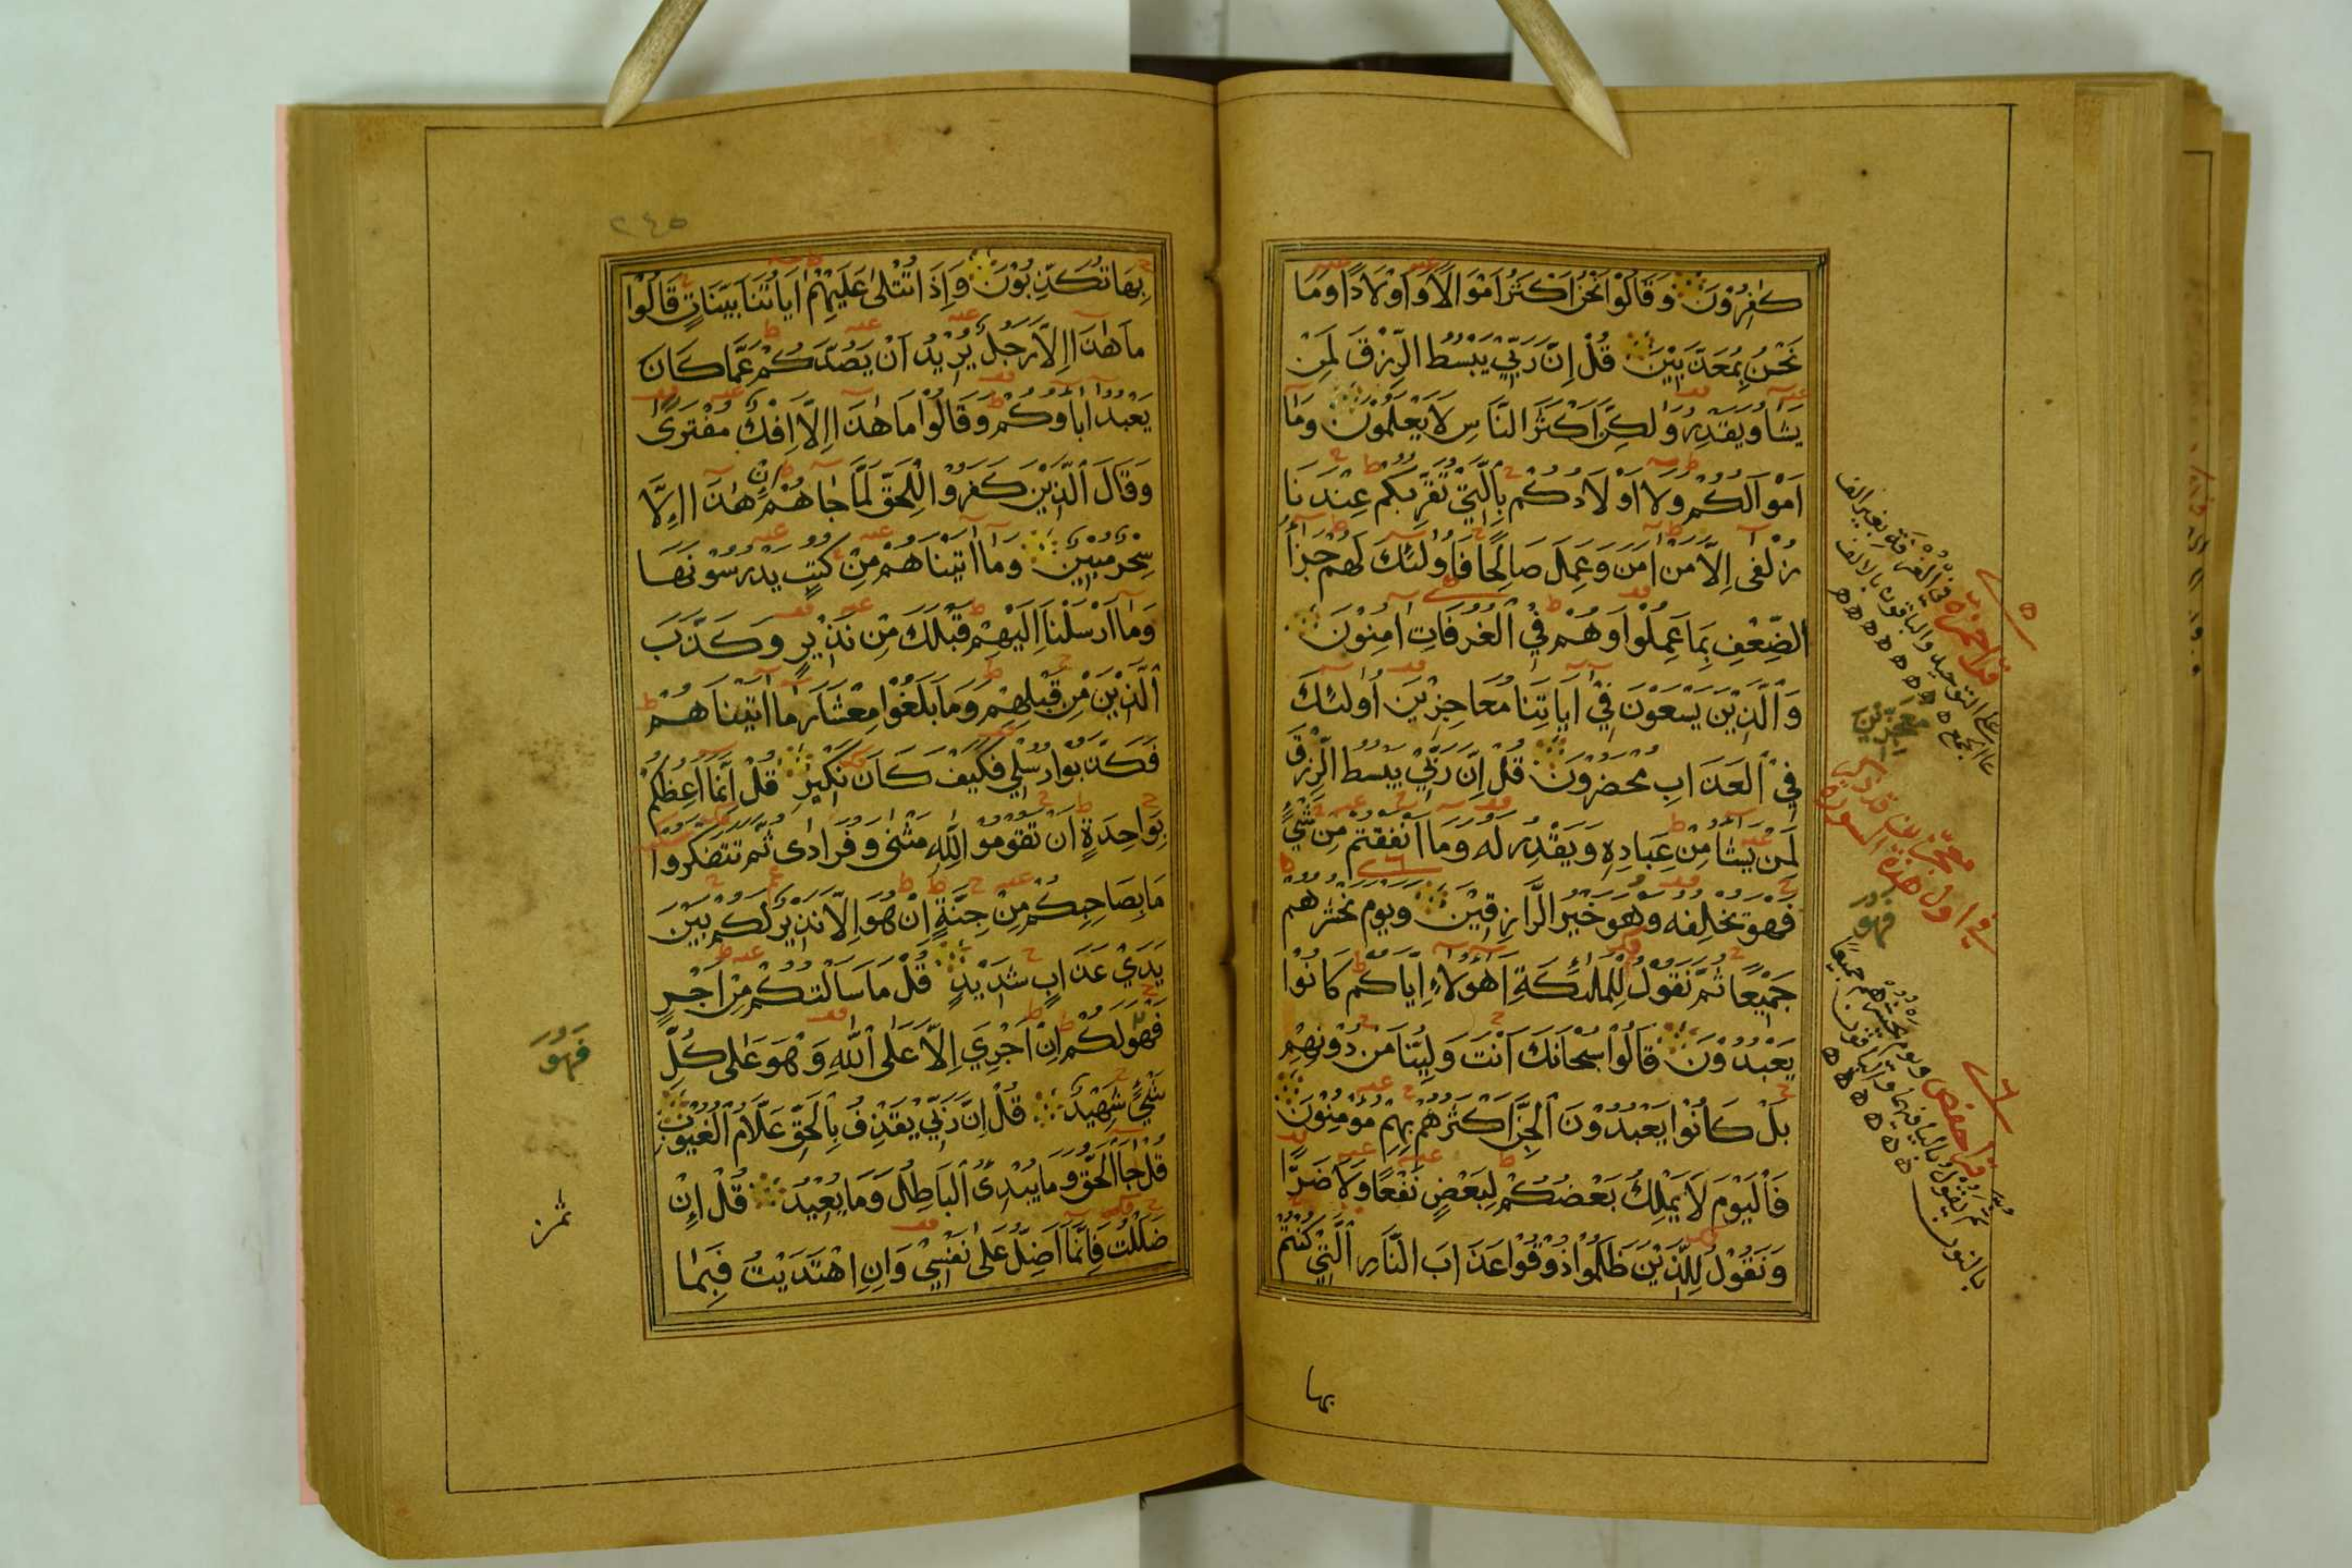 كٰفِرُوْنَ وَقَالُوْا نَحْنُ اَكْثَرُ اَمْوَالًا وَاَوْلَادًا وَمَا
نَحْنُ بِمُعَذَّبِيْنَ قُلْ اِنَّ رَبِّيْ يَبْسُطُ الرِّزْقَ لِمَنْ
يَشَاءُ وَيَقْدِرُ وَلٰكِنَّ اَكْثَرَ النَّاسِ لَا يَعْلَمُوْنَ وَمَا
اَمْوَالُكُمْ وَلَا اَوْلَادُكُمْ بِالَّتِيْ تُقَرِّبُكُمْ عِنْدَنَا
زُلْفٰى اِلَّا مَنْ اٰمَنَ وَعَمِلَ صَالِحًا فَاُولٰئِكَ لَهُمْ جَزَاءُ
الضِّعْفِ بِمَا عَمِلُوْا وَهُمْ فِي الْغُرُفَاتِ اٰمِنُوْنَ
وَالَّذِيْنَ يَسْعَوْنَ فِيْ اٰيَاتِنَا مُعَاجِزِيْنَ اُولٰئِكَ
فِي الْعَذَابِ مُحْضَرُوْنَ قُلْ اِنَّ رَبِّيْ يَبْسُطُ الرِّزْقَ
لِمَنْ يَشَاءُ مِنْ عِبَادِهِ وَيَقْدِرُ لَهُ وَمَا اَنْفَقْتُمْ مِنْ شَيْءٍ
فَهُوَ يُخْلِفُهُ وَهُوَ خَيْرُ الرَّازِقِيْنَ وَيَوْمَ نَحْشُرُهُمْ
جَمِيْعًا ثُمَّ نَقُوْلُ لِلْمَلٰئِكَةِ اَهٰؤُلَاءِ اِيَّاكُمْ كَانُوْا
يَعْبُدُوْنَ قَالُوْا سُبْحَانَكَ اَنْتَ وَلِيُّنَا مِنْ دُوْنِهِمْ
بَلْ كَانُوْا يَعْبُدُوْنَ الْجِنَّ اَكْثَرُهُمْ بِهِمْ مُؤْمِنُوْنَ
فَالْيَوْمَ لَا يَمْلِكُ بَعْضُكُمْ لِبَعْضٍ نَفْعًا وَلَا ضَرًّا
وَنَقُوْلُ لِلَّذِيْنَ ظَلَمُوْا ذُوْقُوْا عَذَابَ النَّارِ الَّتِيْ كُنْتُمْ
بها
قرا حمزة في الغرفة بغير الف
على التوحيد والباقون بالالف
على الجمع
معجزين
معجزين قد ذكر
في اول هذه السورة
فهو
قرا حفص ويوم يحشرهم جميعا
ثم يقول بالياء فيهما والباقون
بالنون
٢٤٥
بِهَا تُكَذِّبُوْنَ وَاِذَا تُتْلٰى عَلَيْهِمْ اٰيَاتُنَا بَيِّنَاتٍ قَالُوْا
مَا هٰذَا اِلَّا رَجُلٌ يُرِيْدُ اَنْ يَصُدَّكُمْ عَمَّا كَانَ
يَعْبُدُ اٰبَاؤُكُمْ وَقَالُوْا مَا هٰذَا اِلَّا اِفْكٌ مُفْتَرًى
وَقَالَ الَّذِيْنَ كَفَرُوْا لِلْحَقِّ لَمَّا جَاءَهُمْ اِنْ هٰذَا اِلَّا
سِحْرٌ مُبِيْنٌ وَمَا اٰتَيْنَاهُمْ مِنْ كُتُبٍ يَدْرُسُوْنَهَا
وَمَا اَرْسَلْنَا اِلَيْهِمْ قَبْلَكَ مِنْ نَذِيْرٍ وَكَذَّبَ
الَّذِيْنَ مِنْ قَبْلِهِمْ وَمَا بَلَغُوْا مِعْشَارَ مَا اٰتَيْنَاهُمْ
فَكَذَّبُوْا رُسُلِيْ فَكَيْفَ كَانَ نَكِيْرِ قُلْ اِنَّمَا اَعِظُكُمْ
بِوَاحِدَةٍ اَنْ تَقُوْمُوْا لِلّٰهِ مَثْنٰى وَفُرَادٰى ثُمَّ تَتَفَكَّرُوْا
مَا بِصَاحِبِكُمْ مِنْ جِنَّةٍ اِنْ هُوَ اِلَّا نَذِيْرٌ لَكُمْ بَيْنَ
يَدَيْ عَذَابٍ شَدِيْدٍ قُلْ مَا سَاَلْتُكُمْ مِنْ اَجْرٍ
فَهُوَ لَكُمْ اِنْ اَجْرِيَ اِلَّا عَلَى اللّٰهِ وَهُوَ عَلٰى كُلِّ
شَيْءٍ شَهِيْدٌ قُلْ اِنَّ رَبِّيْ يَقْذِفُ بِالْحَقِّ عَلَّامُ الْغُيُوْبِ
قُلْ جَاءَ الْحَقُّ وَمَا يُبْدِئُ الْبَاطِلُ وَمَا يُعِيْدُ قُلْ اِنْ
ضَلَلْتُ فَاِنَّمَا اَضِلُّ عَلٰى نَفْسِيْ وَاِنِ اهْتَدَيْتُ فَبِمَا
فهو